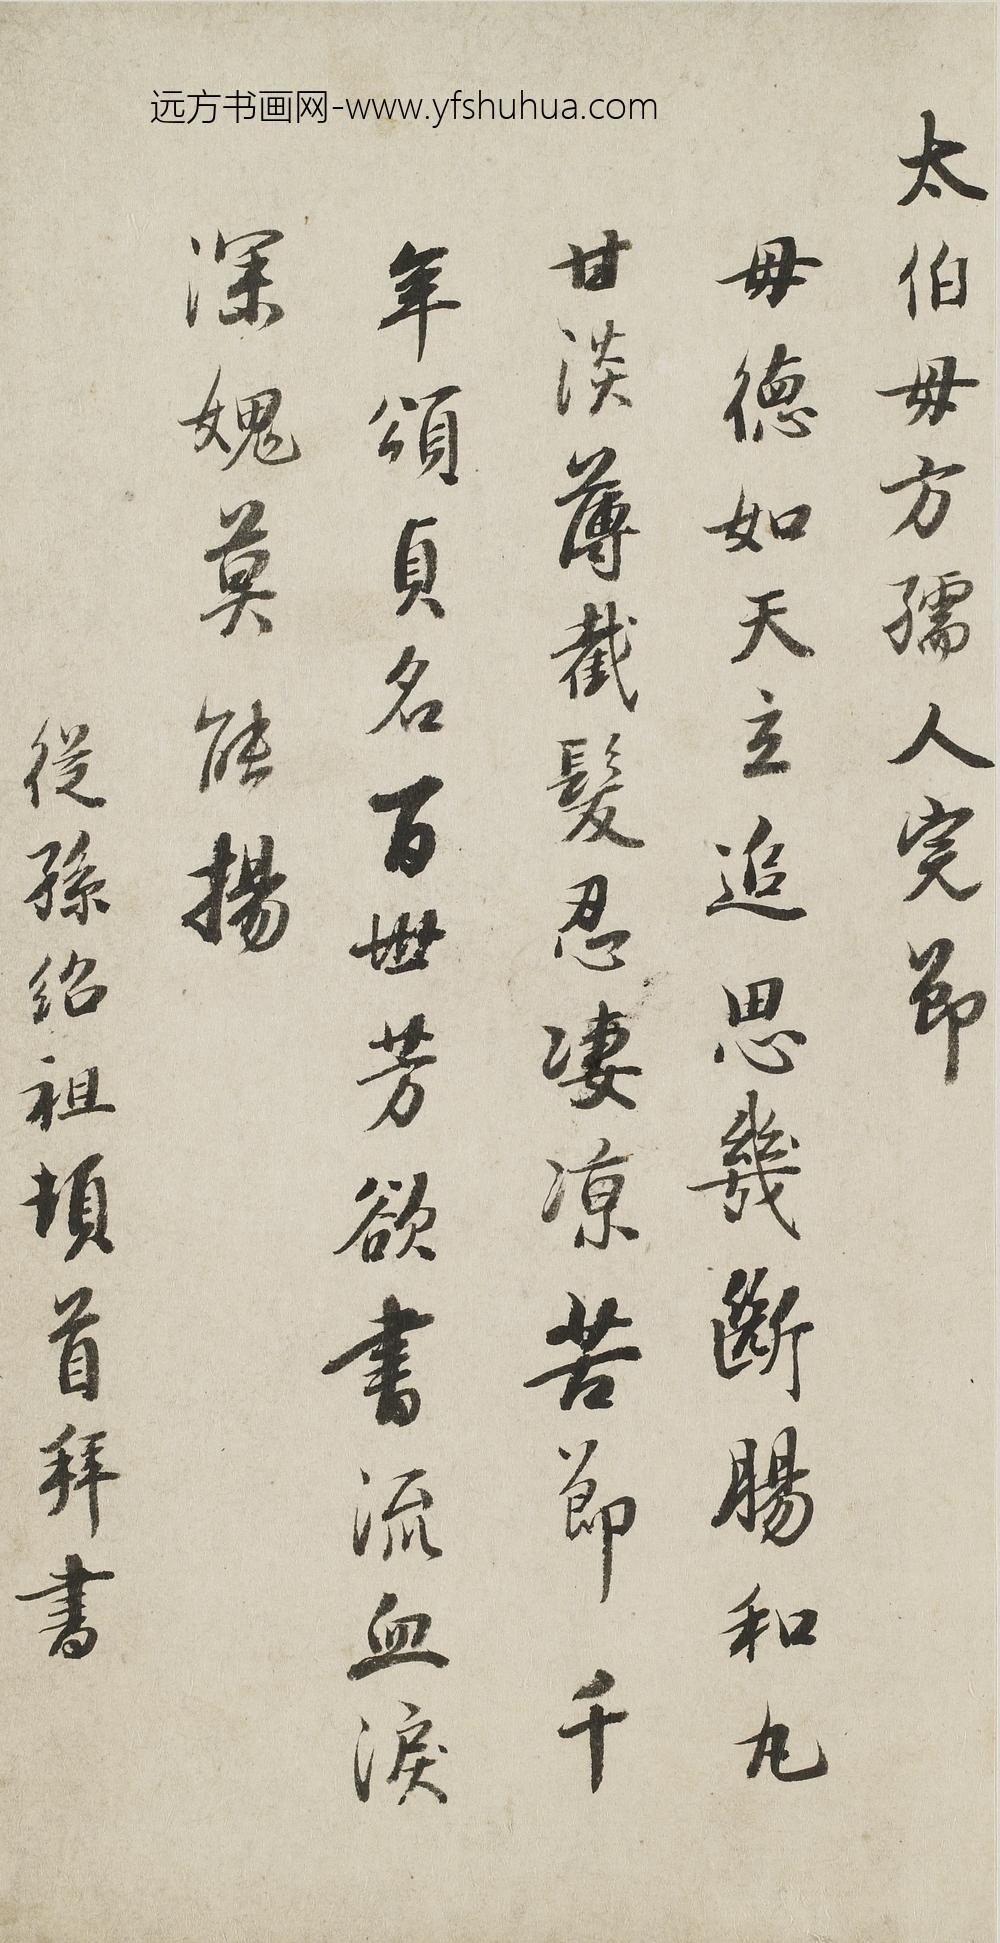 远方书画网-www.yfshuhua.com
太伯母方孺人完節
母德如天立追思幾斷腸和丸
甘淡薄截髮忍凄凉苦節千
年頌貞名百世芳欲書流血淚
深媿莫能揚
從孫紹祖頓首拜書